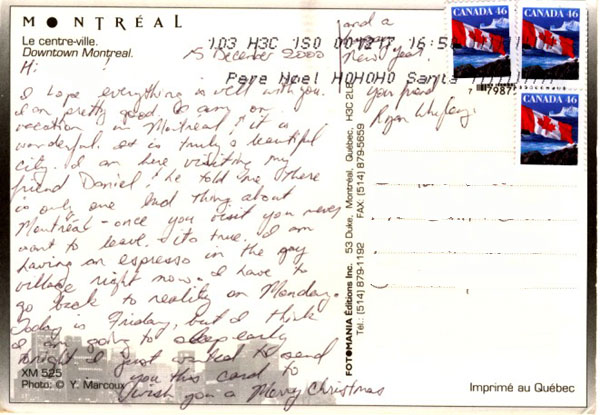 MONTRÉAL
Le centre-ville.
Downtown Montreal.
103 H3C 1S0 00 12 17 16:5
Pere Noel HOHOHO Santa
15 December 2000
Hi:
I hope everything is well with you.
I am pretty good. I am on
vacation in Montreal! it is
wonderful. It is truly a beautiful
city. I am here visiting my
friend Daniel! he told me there
is only one bad thing about
Montréal - once you visit you never
want to leave. its true. I am
having an espresso in the gay
village right now. I have to
go back to reality on Monday.
Today is Friday, but I think
I am going to sleep early
tonight I just wanted to send
you this card to
wish you a Merry Christmas
and a
Happy
New Year.
Your friend
Ryan
XM 525
Photo: © Y. Marcoux
FOTOMANIA Éditions Inc. 53 Duke, Montréal, Québec, H3C 2L8
Tél.: (514) 879-1192 FAX: (514) 879-5659
CANADA 46
CANADA 46
CANADA 46
7987
Imprimé au Québec